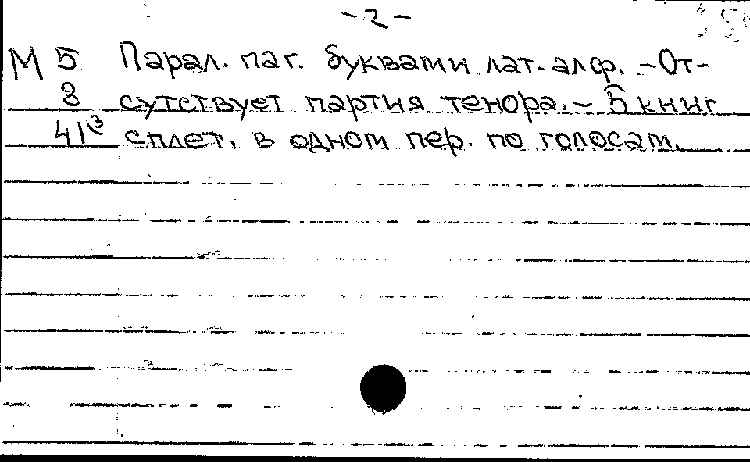 - 2 -
М 5 Парал. паг. буквами лат. алф. - От-
8 сутствует партия тенора. - 5 книг
41³ сплет. в одном пер. по голосам.